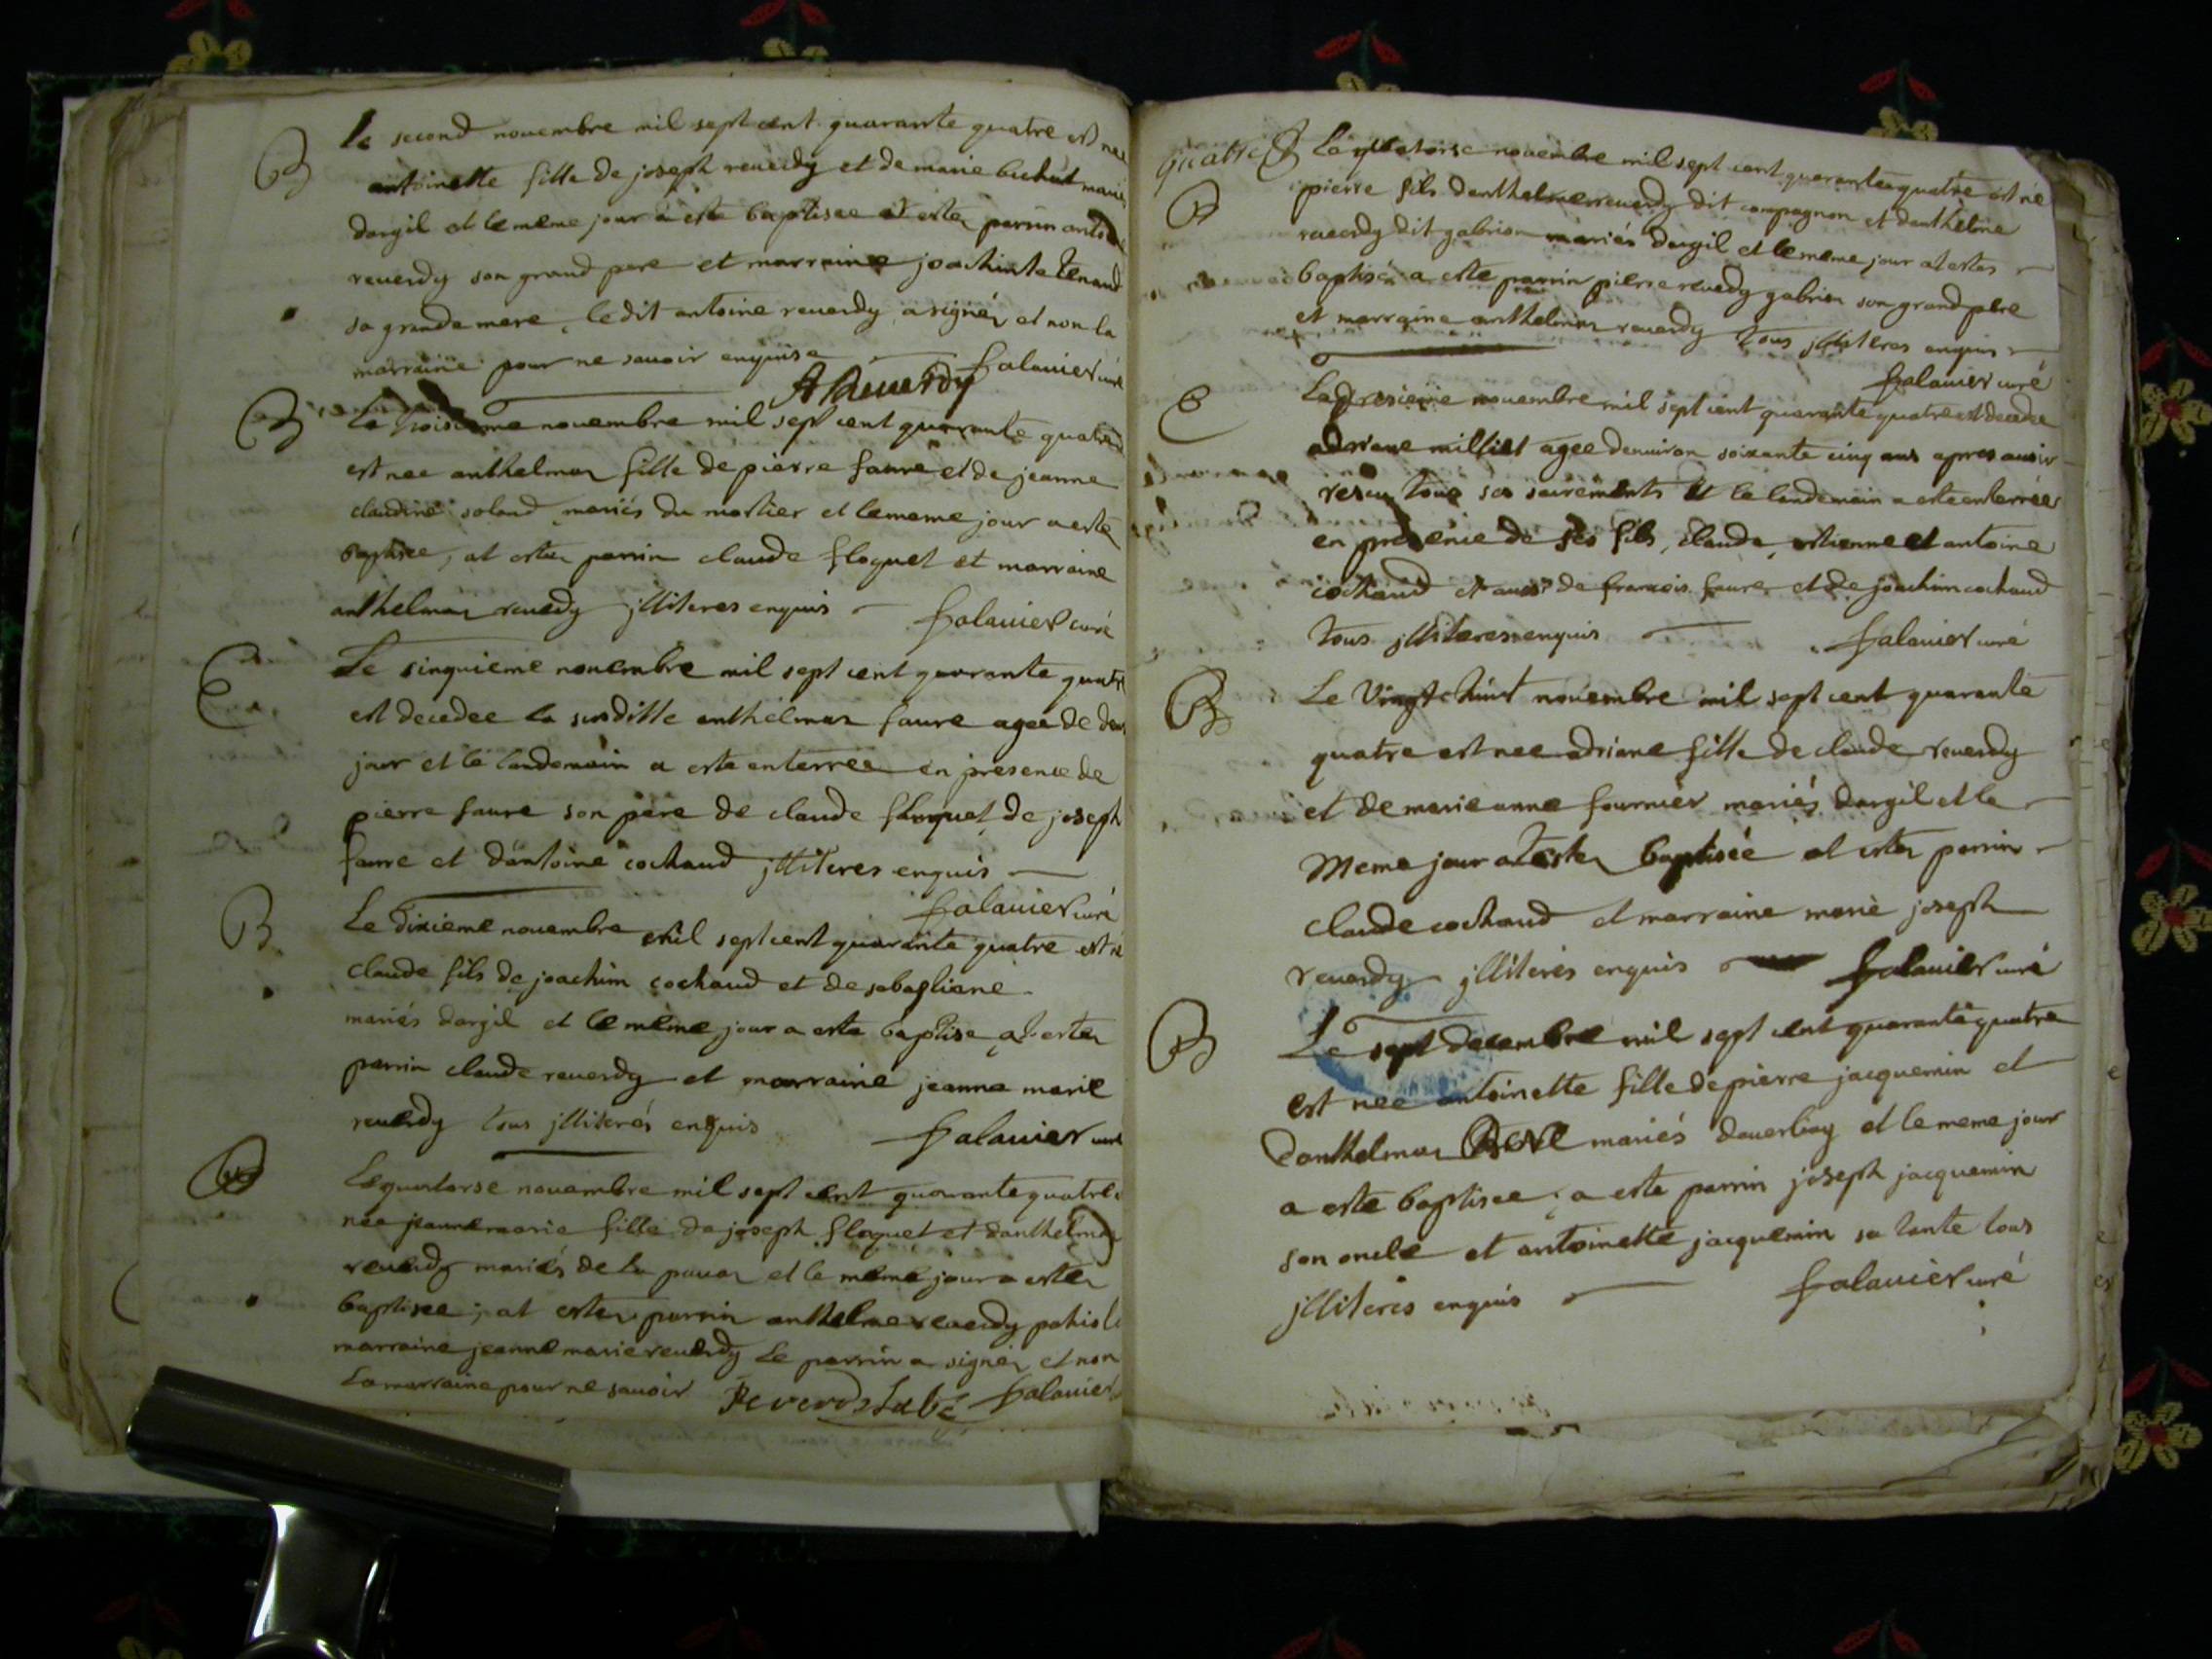 B
Le second novembre mil sept cent quarante quatre est nee
antoinette fille de joseph reverdy et de marie buchut mariés
dargil et le meme jour a esté baptisee at ester parrin antoine
reverdy son grand pere et marraine joachinte tenand
sa grande mere, ledit antoine reverdy a signéz et non la
marraine pour ne savoir enquise falavier curé
A Reverdy
B
Le troisieme novembre mil sept cent quarante quatre
est nee anthelmaz fille de pierre faure et de jeanne
claudine mariés du mortier et le meme jour a esté
baptisee, at estez parrin claude floquet et marraine
anthelmaz reverdy jlliteres enquis falavier curé
E
Le sinquieme novembre mil sept cent quarante quatre
est decedee la susditte anthelmaz faure agee de deux
jour et le landemain a este enterree en presence de
pierre faure son pere de claude floquet de joseph
faure et dantoine cochaud jlliteres enquis
falavier curé
B
Le dixieme novembre mil sept cent quarante quatre est né
claude fils de joachim cochaud et de
mariés dargil et le même jour a esté baptise at estez
parrin claude reverdy et marraine jeanne marie
reverdy tous jlliterés enquis falavier curé
B
Le quatorse novembre mil sept cent quarante quatre
nee jeanne marie fille de joseph floquet et danthelmaz
reverdy mariés de la et le même jour a estez
baptisee; at estez parrin anthelme reverdy
marraine jeanne marie reverdy Le parrin a signéz et non
La marraine pour ne savoir falavier
quatre
B
Le quatorse novembre mil sept cent quarante quatre est né
pierre fils danthelme reverdy dit compagnon et danthelme
reverdy dit gabrion mariés dargil et le meme jour at estez
baptisé a esté parrin pierre reverdy gabrion son grand pere
et marraine anthelmaz reverdy tous jlliteres enquis
falavier curé
E
novembre mil sept cent quarante quatre est decedee
adriane milliet agee denviron soixante cinq ans apres avoir
resu tous ses sacrements Et le landemain a esté enterrée
en presence de ses fils, claude, estienne et antoine
cochaud et aussi de francois faure et de joachim cochaud
tous jlliteres enquis falavier curé
B
Le Vingt huit novembre mil sept cent quarante
quatre est nee adriane fille de claude reverdy
et de marie anne fournier mariés dargil et le
Meme jour at estez baptisée at estez parrin
claude cochaud et marraine marie joseph
reverdy jlliteres enquis falavier curé
B
Le sept decembre mil sept cent quarante quatre
est nee antoinette fille de pierre jacquemin et
danthelmaz mariés et le meme jour
a este baptisee; a este parrin joseph jacquemin
son oncle et antoinette jacquemin sa tante tous
jlliteres enquis falavier curé